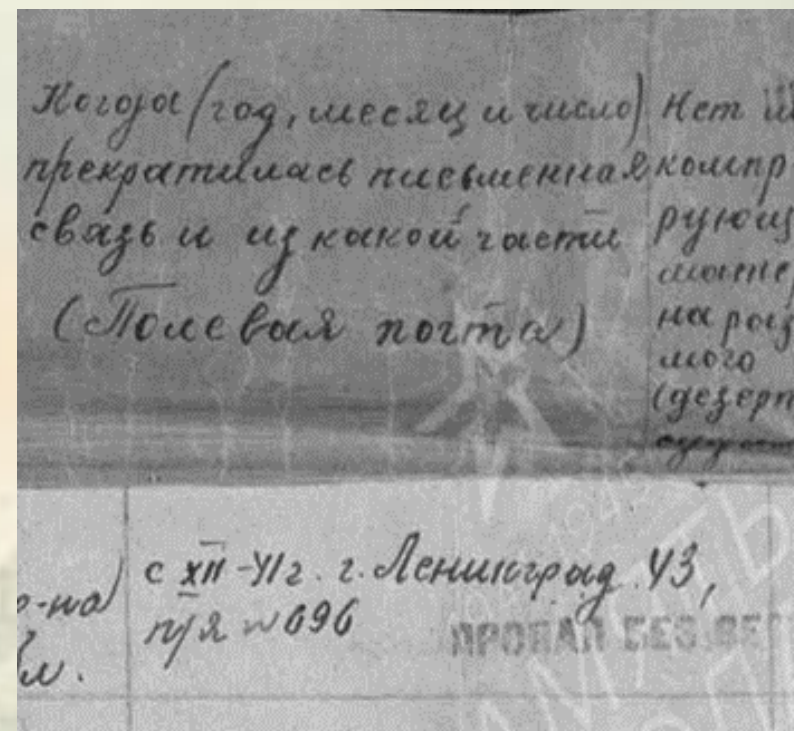 Когда (год, месяц и число)
прекратилась письменная
связь и из какой части
(Полевая почта)
Нет
компр
рующ
матер
на роз
мого
(дезерт
р-на
с XII-41г. г. Ленинград 43,
п/я №696
ПРОПАЛ БЕЗ ВЕ